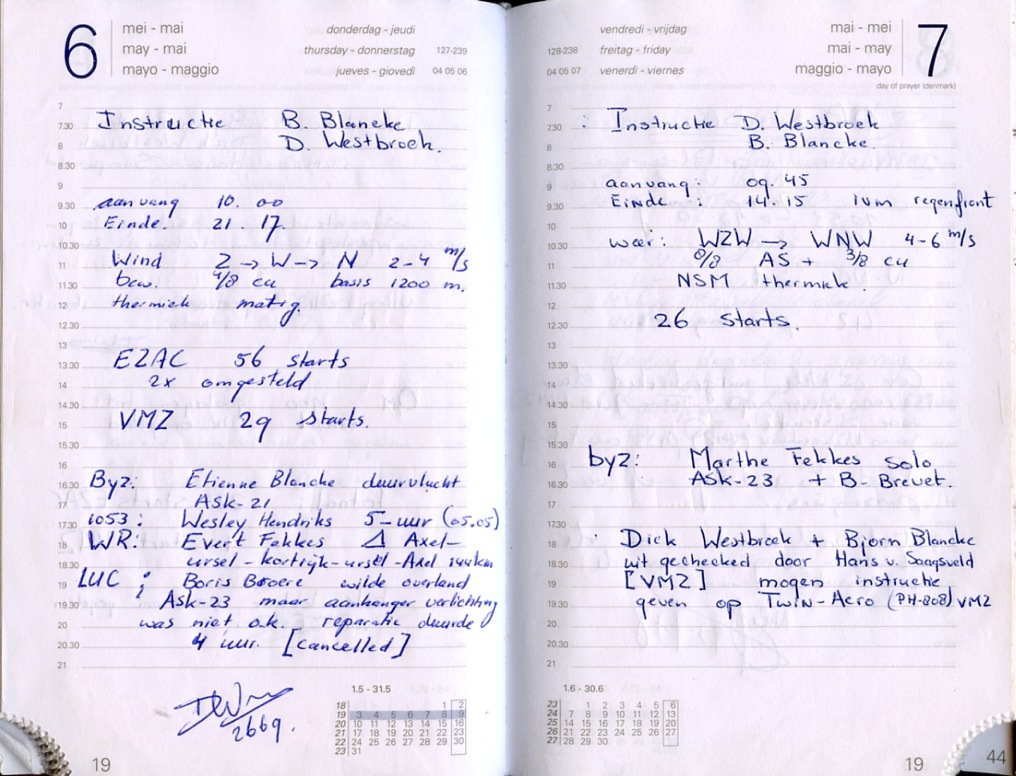 6
mei - mai
may - mai
mayo - maggio
donderdag - jeudi
thursday - donnerstag 127-239
jueves - giovedi 04 05 06
7
7.30
8
8.30
9
9.30
10
10.30
11
11.30
12
12.30
13
13.30
14
14.30
15
15.30
16
16.30
17
17.30
18
18.30
19
19.30
20
20.30
21
Instructie B. Blancke
D. Westbroek.
aanvang 10.00
Einde. 21.17.
Wind Z → W → N 2-4 m/s
bew. 4/8 cu basis 1200 m.
thermiek matig.
EZAC 56 starts
2x omgesteld
VMZ 29 starts.
Byz: Etienne Blancke duurvlucht
Ask-21
1053: Wesley Hendriks 5-uur (05.05)
WR: Evert Fekkes Δ Axel-
ursel-kortrijk-ursel-Axel
LUC: Boris Broere wilde overland
Ask-23 maar aanhanger verlichting
was niet o.k. reparatie duurde
4 uur. [cancelled]
2669.
1.5 - 31.5
18 1 2
19 3 4 5 6 7 8 9
20 10 11 12 13 14 15 16
21 17 18 19 20 21 22 23
22 24 25 26 27 28 29 30
23 31
19
vendredi - vrijdag
128-238 freitag - friday
04 05 07 venerdi - viernes
mai - mei
mai - may
maggio - mayo
7
day of prayer (denmark)
7
7.30
8
8.30
9
9.30
10
10.30
11
11.30
12
12.30
13
13.30
14
14.30
15
15.30
16
16.30
17
17.30
18
18.30
19
19.30
20
20.30
21
: Instructie D. Westbroek
B. Blancke.
aanvang: 09.45
Einde: 14.15 ivm regenfront
weer: WZW → WNW 4-6 m/s
8/8 AS + 3/8 cu
NSM thermiek.
26 starts.
byz: Marthe Fekkes solo
Ask-23 + B-Brevet.
Dick Westbroek + Bjorn Blancke
uit gechecked door Hans v. Saagsveld
[VMZ] mogen instructie
geven op Twin-Acro (PH-808) VMZ
1.6 - 30.6
23 1 2 3 4 5 6
24 7 8 9 10 11 12 13
25 14 15 16 17 18 19 20
26 21 22 23 24 25 26 27
27 28 29 30
19
44